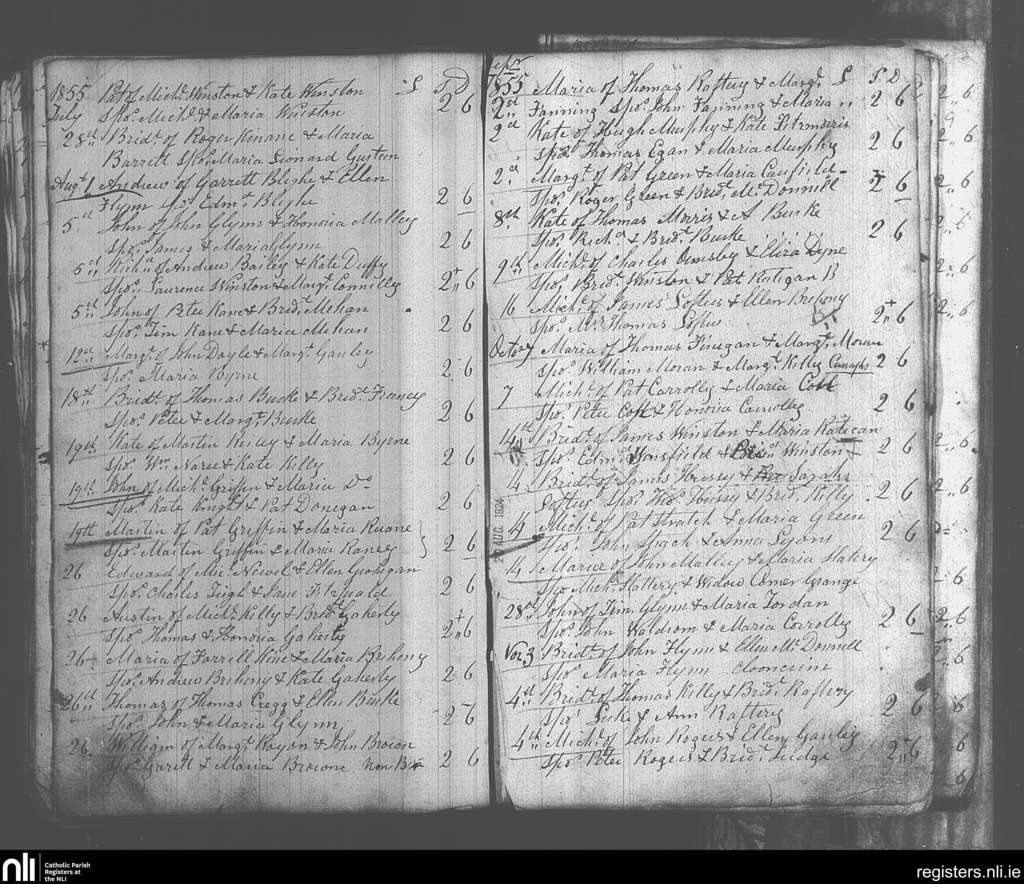 1855 Pat of Michl Winston & Kate Winston £ S D
July Spos. Michl & Maria Winston 2 6
28th Bridt of Roger Kinane & Maria
Barrett Spos. Maria Leonard Gurteen
Augt 1 Andrew of Garrett Blighe & Ellen
Flynn Spos. Edmd Blighe 2 6
5th John of John Glynn & Honoria Malley
Spos. James & Maria Glynn 2 6
5th Richd of Andrew Bailey & Kate Duffy
Spos. Laurence Winston & Margt Connilly 2 " 6
5th John of Peter Kane & Bridt Mehan
Spos. Tim Kane & Maria Mehan 2 6
12th Margt of John Doyle & Margt Ganley
Spos. Maria Byrne 2 6
18th Bridt of Thomas Burke & Bridt Franey
Spos. Peter & Margt Burke 2 6
19th Kate of Martin Kiley & Maria Byrne
Spos. Wm Naree & Kate Kelly 2 6
19th John of Michl Griffin & Maria Do
Spos. Kate Knight & Pat Donegan 2 6
19th Martin of Pat Griffin & Maria Ruane
Spos. Martin Griffin & Maria Raney 2 6
26 Edward of Mic. Newil & Ellen Grohigan
Spos. Charles Tigh & Jane Fitzwald 2 6
26 Austin of Michl Kelly & Bridt Gaherty
Spos. Thomas & Honoria Gaherty 2 " 6
26 Maria of Farrell Kine & Maria Breheny
Spos. Andrew Breheny & Kate Gaherty 2 6
26th Thomas of Thomas Cregg & Ellen Burke
Spos. John & Maria Glynn 2 6
26 William of Margt Royon & John Brocon
Spos. Garett & Maria Browne 2 6
Sepr
1855 Maria of Thomas Raftery & Margt £ S D
2nd Fanning Spos. John Fanning & Maria " 2 6
2d Kate of Hugh Murphy & Kate Fitzmoris
Spos. Thomas Egan & Maria Murphy 2 6
2d Margt of Pat Green & Maria Caufield
Spos. Roger Green & Bridt McDonnell 2 6
8th Kate of Thomas Morris & A Burke
Spos. Richd & Bridt Burke 2 6
9th Michl of Charles Ormsby & Eliza Dyne
Spos. Bridt Winston & Pat Ratigan
16 Michl of James Loftus & Ellen Breheny
Spos. Mr Thomas Loftus 2 " 6
Octor 7 Maria of Thomas Finegan & Margt Moran
Spos. William Moran & Margt Kelly 2 6
7 Michl of Pat Carrolly & Maria Coll
Spos. Peter Coll & Honoria Carrolly 2 6
14th Bridt of James Winston & Maria Ratecan
Spos. Edmd & Winston 2 6
14 Bridt of James Hressy & Sarah
Loftus Spos. Thos & Bridt Kelly 2 6
14 Michl of Pat Stratch & Maria Green
Spos. John & Anna Lyons 2 6
14 Maria of John Malley & Maria Slatery
Spos. Michl Slattery & Widow Comer Grange
28th John of Tim Glynn & Maria Jordan
Spos. John Waldrom & Maria Carrolly 2 6
Nov 3 Bridt of John Flynn & Ellen McDonnell
Spos. Maria Flynn Clooncrim
4th Bridt of Thomas Kelly & Bridt Raftery
Spos. Luke & Ann Raftery 2 6
4th Michl of John Rogers & Ellen Ganley
Spos. Peter Rogers & Bridt Judge 2 " 6
AUG. 1824
nli
Catholic Parish
Registers at
the NLI
registers.nli.ie